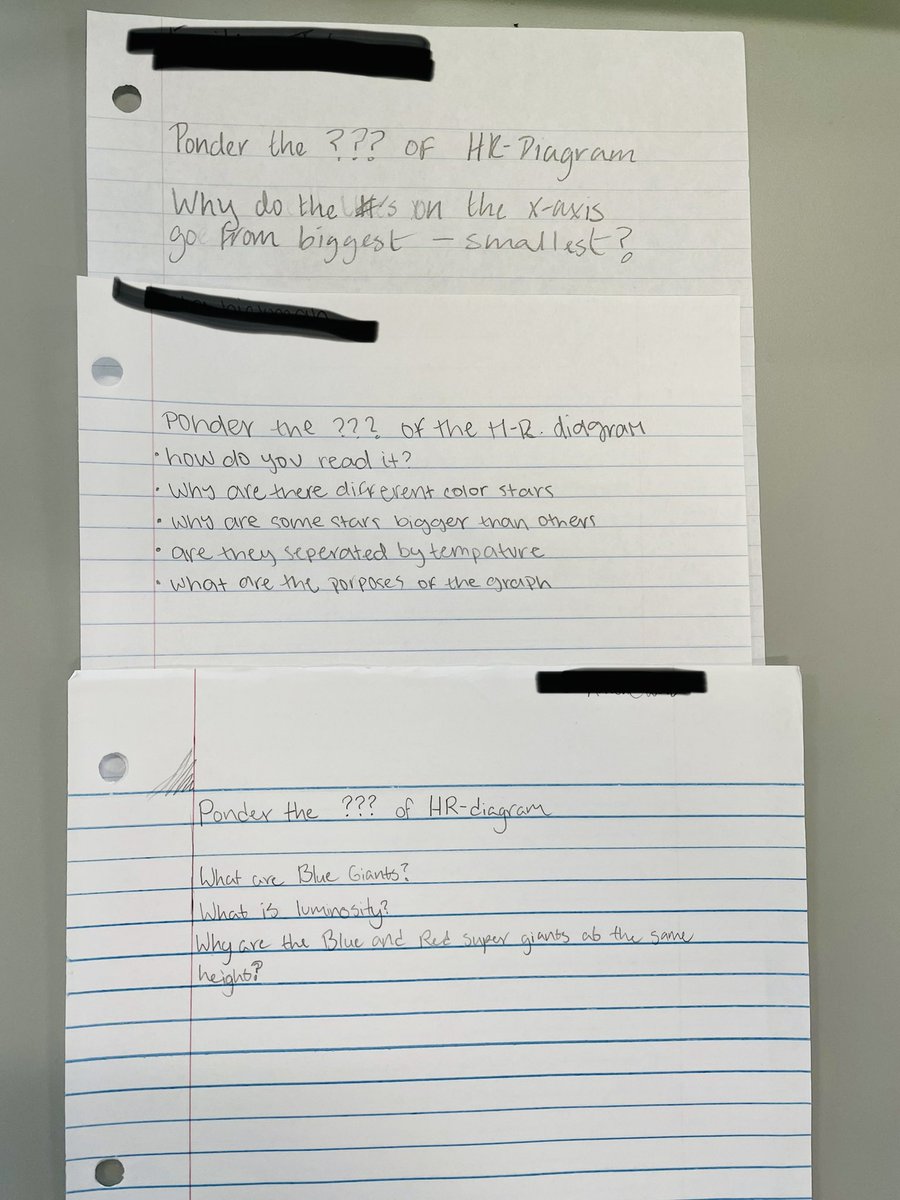 Ponder the ??? of HR-Diagram
Why do the #'s on the x-axis
go from biggest – smallest?
Ponder the ??? of the H-R. diagram
• how do you read it?
• Why are there different color stars
• why are some stars bigger than others
• are they seperated by tempature
• what are the porposes of the graph
Ponder the ??? of HR-diagram
What are Blue Giants?
What is luminosity?
Why are the Blue and Red super giants at the same
height?